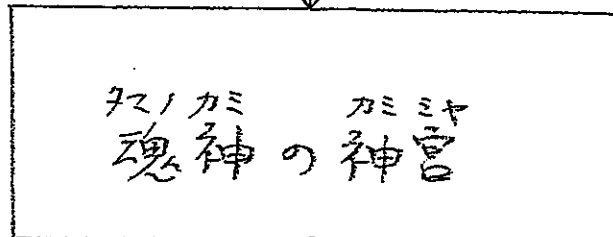 タマノカミ カミミヤ
魂神の神宮